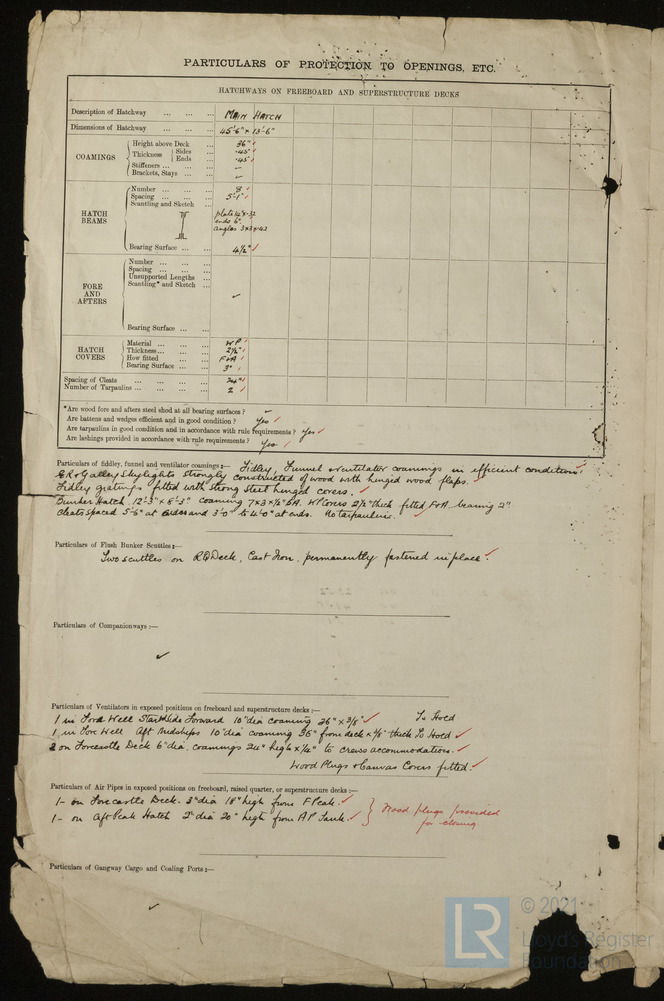 PARTICULARS OF PROTECTION TO OPENINGS, ETC.
HATCHWAYS ON FREEBOARD AND SUPERSTRUCTURE DECKS
Description of Hatchway ... ... ... MAIN HATCH
Dimensions of Hatchway ... ... ... 45'-6" x 13'-6"
COAMINGS
Height above Deck ... 36"
Thickness { Sides ... .45"
Ends ... .45"
Stiffeners ... ... ... –
Brackets, Stays ... ... –
HATCH BEAMS
Number ... ... ... 8
Spacing ... ... ... 5'-1"
Scantling and Sketch
ends 6"
angles 3x3x.42
Bearing Surface ... ... 4½"
FORE AND AFTERS
Number ... ... ...
Spacing ... ... ...
Unsupported Lengths ...
Scantling* and Sketch ...
Bearing Surface ... ...
HATCH COVERS
Material ... ... ... W P
Thickness ... ... ... 2½"
How fitted ... ... F & A
Bearing Surface ... ... 3"
Spacing of Cleats ... ... ... ... 24"
Number of Tarpaulins ... ... ... ... 2
*Are wood fore and afters steel shod at all bearing surfaces? –
Are battens and wedges efficient and in good condition? Yes
Are tarpaulins in good condition and in accordance with rule requirements? Yes
Are lashings provided in accordance with rule requirements? Yes
Particulars of fiddley, funnel and ventilator coamings :— Fidley, Funnel & ventilator coamings in efficient condition.
ER & Galley Skylights strongly constructed of wood with hinged wood flaps.
Fidley gratings fitted with strong steel hinged covers.
Bunker Hatch 12'-3" x 8'-3" coaming 7x3x½" BA. WP Covers 2½" thick fitted F&A bearing 2"
Cleats spaced 5'-6" at sides and 3'-0" to 4'-0" at ends. No tarpaulins.
Particulars of Flush Bunker Scuttles :—
Two scuttles on RQ Deck, Cast Iron, permanently fastened in place.
Particulars of Companionways :—
Particulars of Ventilators in exposed positions on freeboard and superstructure decks :—
1 in Ford Well Starbd side Forward 10" dia coaming 26" x 3/8" To Hold
1 in Fore Well Aft Midships 10" dia coaming 36" from deck x 3/8" thick To Hold
2 on Forecastle Deck 6" dia. coamings 24" high x ¼" to crews accommodation.
Wood Plugs & Canvas Covers fitted.
Particulars of Air Pipes in exposed positions on freeboard, raised quarter, or superstructure decks :—
1- on Forecastle Deck. 3" dia 18" high from F Peak.
1- on Aft Peak Hatch 2" dia 20" high from AP Tank.
} Wood plugs provided
for closing
Particulars of Gangway Cargo and Coaling Ports :—
LR
© 2021
Lloyd's Register
Foundation